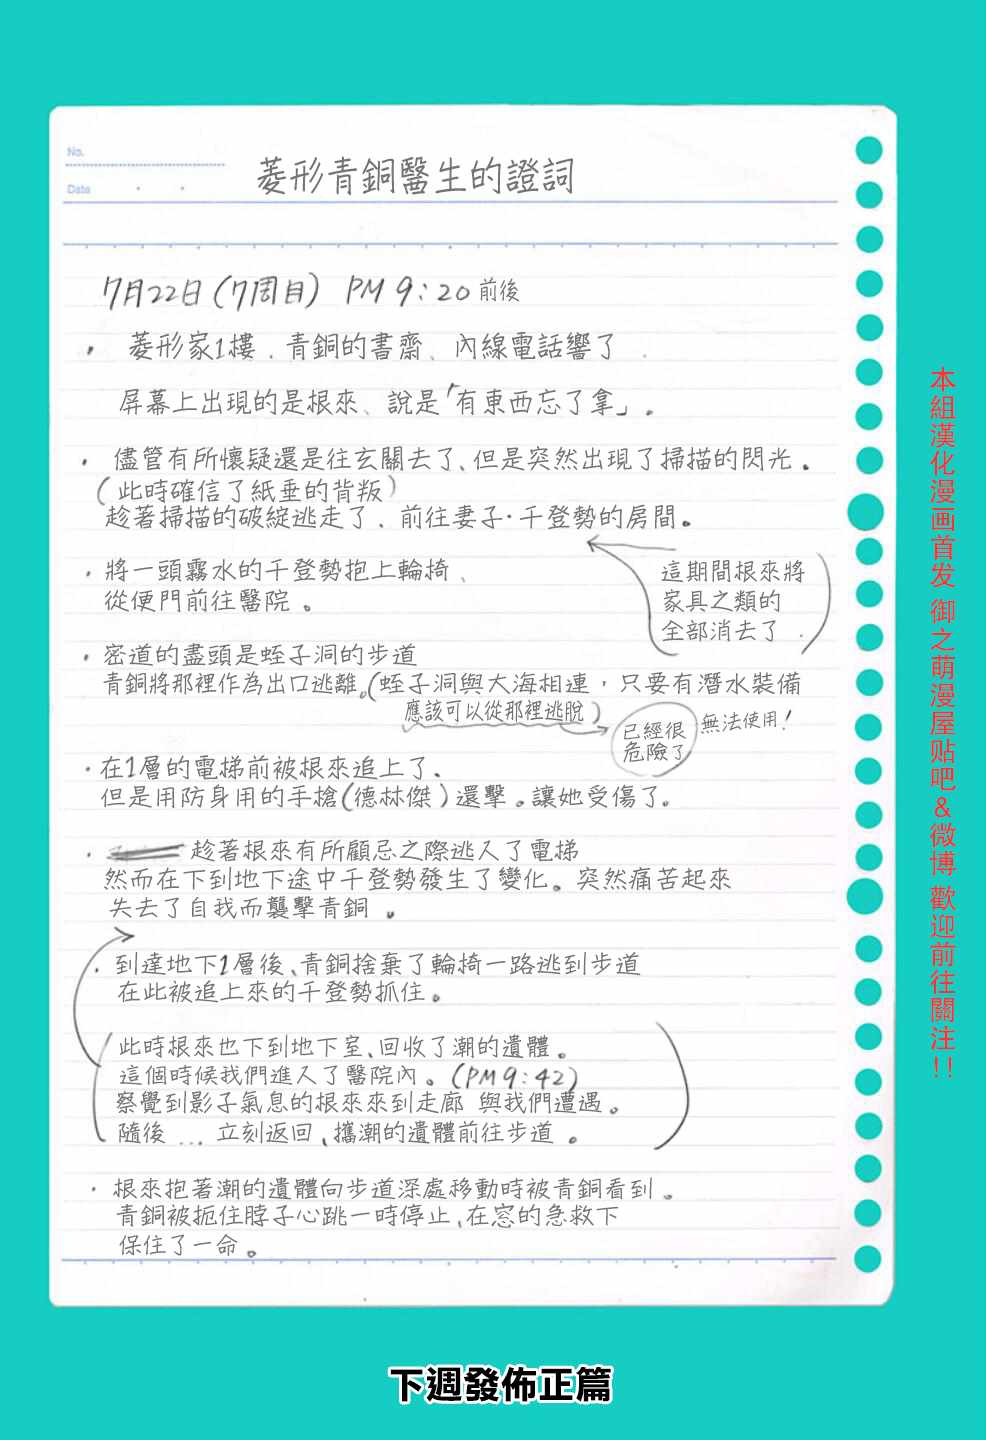 No.
Date
菱形青銅醫生的證詞
7月22日(7周目) PM 9:20前後
· 菱形家1樓．青銅的書齋、內線電話響了．
屏幕上出現的是根來、說是「有東西忘了拿」。
· 儘管有所懷疑還是往玄關去了、但是突然出現了掃描的閃光。
(此時確信了紙垂的背叛)
趁著掃描的破綻逃走了、前往妻子·千登勢的房間。
這期間根來將
家具之類的
全部消去了．
· 將一頭霧水的千登勢抱上輪椅、
從便門前往醫院。
· 密道的盡頭是蛭子洞的步道
青銅將那裡作為出口逃離。(蛭子洞與大海相連，只要有潛水裝備
應該可以從那裡逃脫)
已經很
危險了
無法使用!
· 在1層的電梯前被根來追上了、
但是用防身用的手槍(德林傑)還擊。讓她受傷了。
· 趁著根來有所顧忌之際逃入了電梯
然而在下到地下途中千登勢發生了變化。突然痛苦起來
失去了自我而襲擊青銅。
· 到達地下1層後、青銅捨棄了輪椅一路逃到步道
在此被追上來的千登勢抓住。
(此時根來也下到地下室、回收了潮的遺體。
這個時候我們進入了醫院內。(PM 9:42)
察覺到影子氣息的根來來到走廊 與我們遭遇。
隨後...立刻返回、攜潮的遺體前往步道。)
· 根來抱著潮的遺體向步道深處移動時被青銅看到。
青銅被扼住脖子心跳一時停止、在窓的急救下
保住了一命。
本組漢化漫画首发 御之萌漫屋贴吧&微博 歡迎前往關注!!
下週發佈正篇